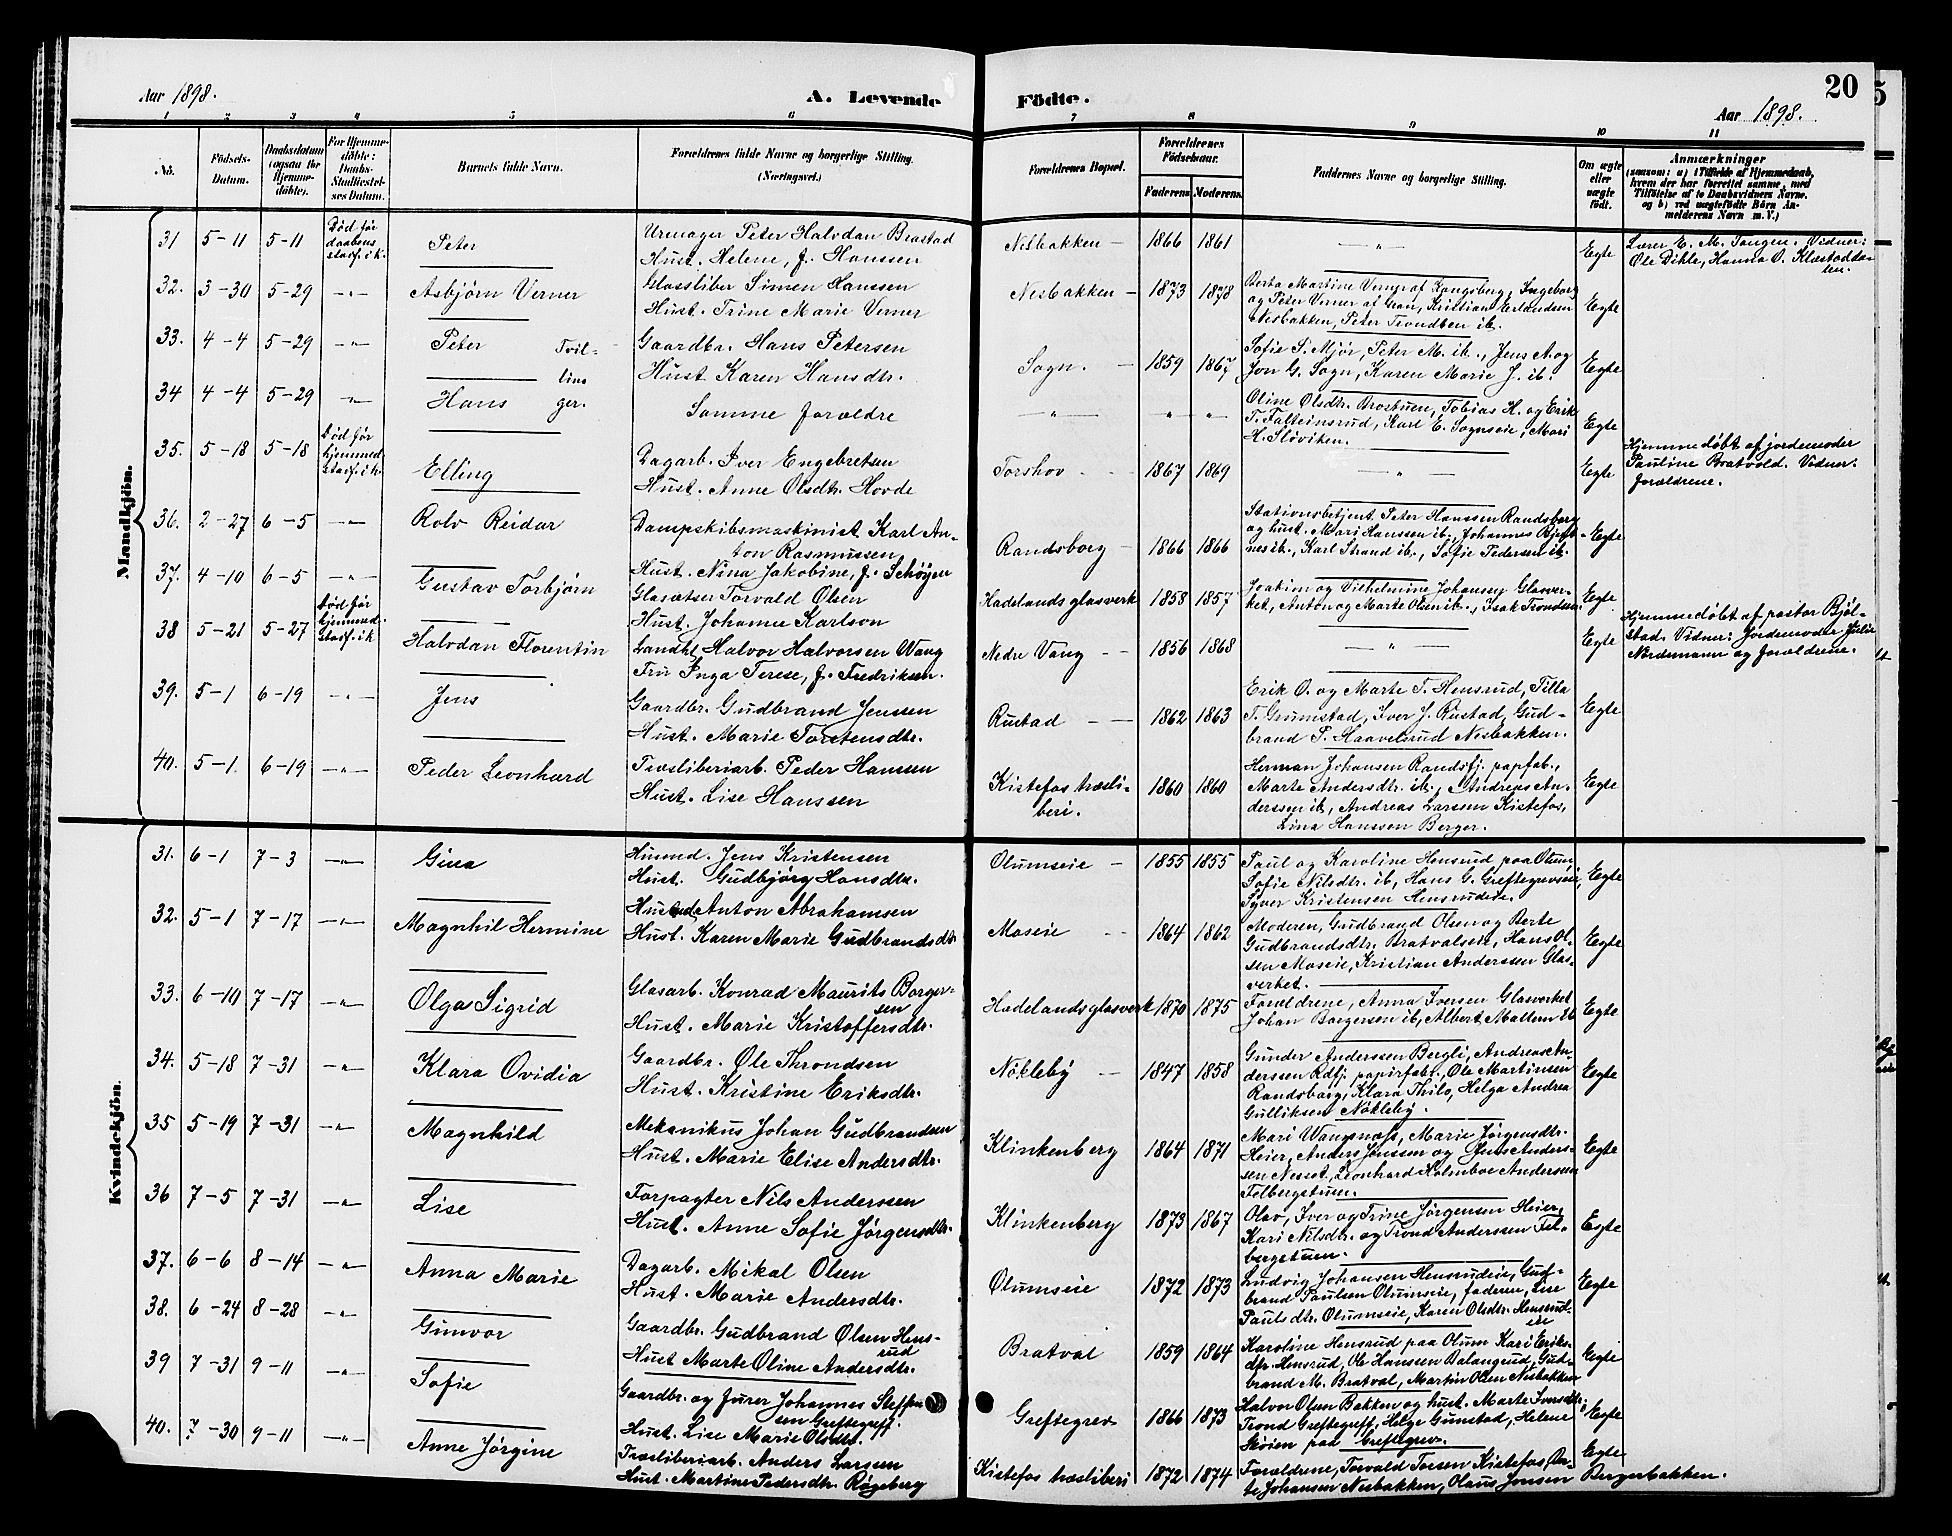 Aar 1898.
A. Levende
Födte.
20
Aar 1898.
1 2 3 4 5 6 7 8 9 10 11
No.
Födsels-
Datum.
Daabsdatum
(ogsaa for
Hjemme-
döbte).
For Hjemme-
döbte:
Daabs-
Stadfæstel-
ses Datum.
Barnets fulde Navn.
Forældrenes fulde Navne og borgerlige Stilling.
(Næringsvei.)
Forældrenes Bopæl.
Forældrenes
Födselsaar.
Faderens Moderens
Faddernes Navne og borgerlige Stilling.
Om ægte
eller
uægte
födt.
Anmærkninger
(saasom: a) i Tilfælde af Hjemmedaab,
hvem der har forrettet samme, med
Tilföielse af to Daabsvidners Navne,
og b) ved uægtefödte Börn An-
melderens Navn m. V.)
Mandkjön.
31 5-11 5-11 Död før
daabens
stadf. i k.
Peter
Urmager Peter Halvdan Brastad
Hust. Helene, f. Hanssen
Nesbakken 1866 1861 — " — Egte
Lærer E. M. Tangen. Vidner:
Ole Dihle, Hanna O. Klæstadda-
len.
32. 3-30 5-29 — " —
Asbjørn Verner
Glassliber Simen Hanssen
Hust. Trine Marie Verner
Nesbakken 1873 1878
Berta Martine Verner af Kongsberg, Ingeborg
og Peter Verner af Gran, Kristian Erlandsen
Nesbakken, Peter Trondsen ib.
Egte
33. 4-4 5-29 — " —
Peter Tvil-
Gaardbr. Hans Petersen
Hust Karen Hansdtr.
Sogn. 1859 1867
Sofie S. Mjør, Peter M. ib., Jens A. og
Jon G. Sogn, Karen Marie J. ib.
Egte
34 4-4 5-29 "
ling
Hans ger.
Samme forældre
— " — " — " —
Oline Olsdtr. Brostuen, Tobias H. og Erik
T. Falteinsrud, Karl E. Sognseie, Mari
H. Sløviken.
Egte
35. 5-18 5-18 Död før
hjemmed.
stadf. i k.
Elling
Dagarb. Iver Engebretsen
Hust. Anne Olsdtr. Hovde
Torshov 1867 1869 — " — Egte
Hjemmedøbt af jordemoder
Pauline Bratvold. Vidner:
forældrene.
36. 2-27 6-5 — " —
Rolv Reidar
Dampskibsmaskinist Karl An-
ton Rasmussen
Hust. Nina Jakobine, f. Schøyen
Randsborg 1866 1866
Stationsbetjent. Peter Hanssen Randsborg
og hust. Mari Hanssen ib., Johannes Bjerk-
nes ib., Karl Strand ib., Sofie Pedersen ib.
Egte
37. 4-10 6-5 — " —
Gustav Torbjørn
Glasætser Torvald Olsen
Hust. Johanne Karlson
Hadelands glasverk 1858 1857
Joakim og Vilhelmine Johansen Glasver-
ket, Anton og Marte Olsen ib., Isak Trondsen
Egte
38 5-21 5-27 Död før
hjemmed.
stadf. i k
Halvdan Florentin
Landhl Halvor Halvorsen Vang
Fru Inga Terese, f. Fredriksen.
Nedre Vang 1856 1868 — " — Egte
Hjemmedøbt af pastor Bjøl-
stad. Vidner: Jordemoder Julie
Nordemann og forældrene.
39. 5-1 6-19 — " —
Jens
Gaardbr. Gudbrand Jenssen
Hust. Marie Torstensdtr.
Rustad 1862 1863
Erik O. og Marte T. Hensrud, Tilla
T. Grumstad, Iver J. Rustad, Gud-
brand P. Haavelsrud Nesbakken.
Egte
40. 5-1. 6-19 — " —
Peder Leonhard
Træsliberiarb. Peder Hanssen
Hust. Lise Hanssen
Kistefos træsli-
beri.
1860 1860
Herman Johansen Randsfj. papfab.,
Marte Andersdtr. ib., Andreas An-
derssen ib., Andreas Larssen Kistefos,
Lina Hanssen Berger.
Egte
Kvindekjön.
31. 6-1 7-3 — " —
Gina
Husmd. Jens Kristensen
Hust. Gudbjørg Hansdtr.
Olumseie 1855 1855
Paul og Karoline Hensrud paa Olum,
Sofie Nilsdtr. ib, Hans G. Greftegrevseie,
Syver Kristensen Hensrudeie.
Egte
32. 5-1 7-17 — " —
Magnhil Hermine
Anton Abrahamsen
Hust. Karen Marie Gudbrandsdtr
Moseie 1864 1862
Moderen, Gudbrand Olsen og Berte
Gudbrandsdtr. Bratvalseie, Hans Ol-
sen Moseie, Kristian Anderssen Glas-
verket.
Egte
33. 6-10 7-17 — " —
Olga Sigrid
Glasarb. Konrad Maurits Borger-
sen
Hust. Marie Kristoffersdtr.
Hadelands glasverk 1870 1875
Forældrene, Anna Iversen Glasverket
Johan Borgersen ib, Albert Mattern ib
Egte
34. 5-18 7-31 — " —
Klara Ovidia
Gaardbr. Ole Throndsen
Hust. Kristine Eriksdtr.
Nökleby 1847 1858
Gunder Anderssen Bergli, Andreas An-
derssen Rdfj. papirfabr. Ole Martinsen
Randsborg, Klara Thilo, Helga Andrea
Gulliksen Nökleby.
Egte
35 5-19 7-31 — " —
Magnhild
Mekanikus Johan Gudbrandsen
Hust. Marie Elise Andersdtr.
Klinkenberg 1864 1871
Mari Wangsnæss, Marie Jørgensdtr.
Heier, Anders Jonssen og Jens Anders-
sen Nesset, Leonhard Holmboe Anderssen
Felbergstuen.
Egte
36 7-5 7-31 — " —
Lise
Forpagter Nils Anderssen
Hust. Anne Sofie Jørgensdtr.
Klinkenberg 1873 1867
Olav, Iver og Trine Jørgensen Heier,
Kari Nilsdtr. og Trond Anderssen Fel-
bergstuen.
Egte
37. 6-6 8-14 — " —
Anna Marie
Dagarb. Mikal Olsen
Hust. Marie Andersdtr.
Olumseie 1872 1873
Ludvig Johansen Hensrudeie, Gud-
brand Paulsen Olumseie, faderen, Lise
Paulsdtr. Olumseie, Karen Olsdtr. Hensrud-
eie
Egte
38. 6-24 8-28 — " —
Gunvor
Gaardbr. Gudbrand Olsen Hens-
rud
Hust Marte Oline Andersdtr.
Bratval 1859 1864
Karoline Hensrud paa Olum Kari Eriks-
dtr. Hensrud, Ole Hanssen Balangrud, Gud-
brand M. Bratval, Martin Olsen Nesbakken
Egte
39 7-31 9-11 — " —
Sofie
Gaardbr. og Furer Johannes Steffen-
sen Greftegreff.
Hust. Lise Marie Olsdtr.
Greftegrev 1866 1873
Halvor Olsen Bakken og hust. Marte Iversdtr.
Trond Greftegreff, Helge Gunstad, Helene
Skøien paa Greftegrev.
Egte
40. 7-30 9-11 — " —
Anne Jørgine
Træsliberiarb. Anders Larssen
Hust. Martine Pedersdtr. Røgeberg
Kistefos træsliberi 1872 1874
Forældrene, Torvald Torsen Kistefos
Johansen Nesbakken, Olaus Jensen Bergerbakken.
Egte